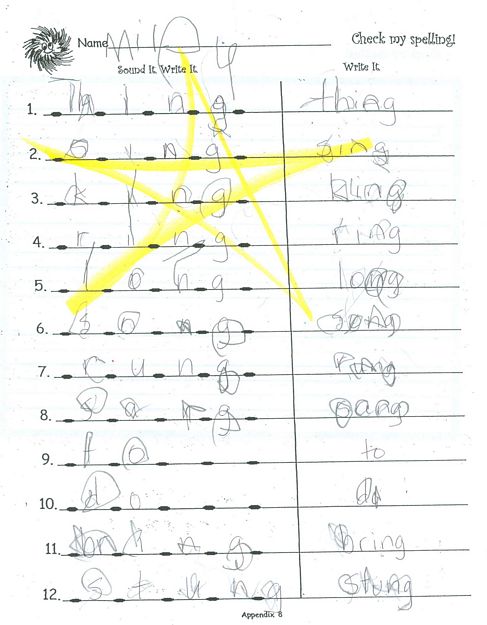 Name Check my spelling!
Sound It. Write It. Write It.
1. Th i n g thing
2. s i n g sing
3. k i n g king
4. r i n g ring
5. l o n g long
6. s o n g song
7. r u n g rung
8. s a n g sang
9. t o to
10. d o do
11. bring
12. S t u n g stung
Appendix 8